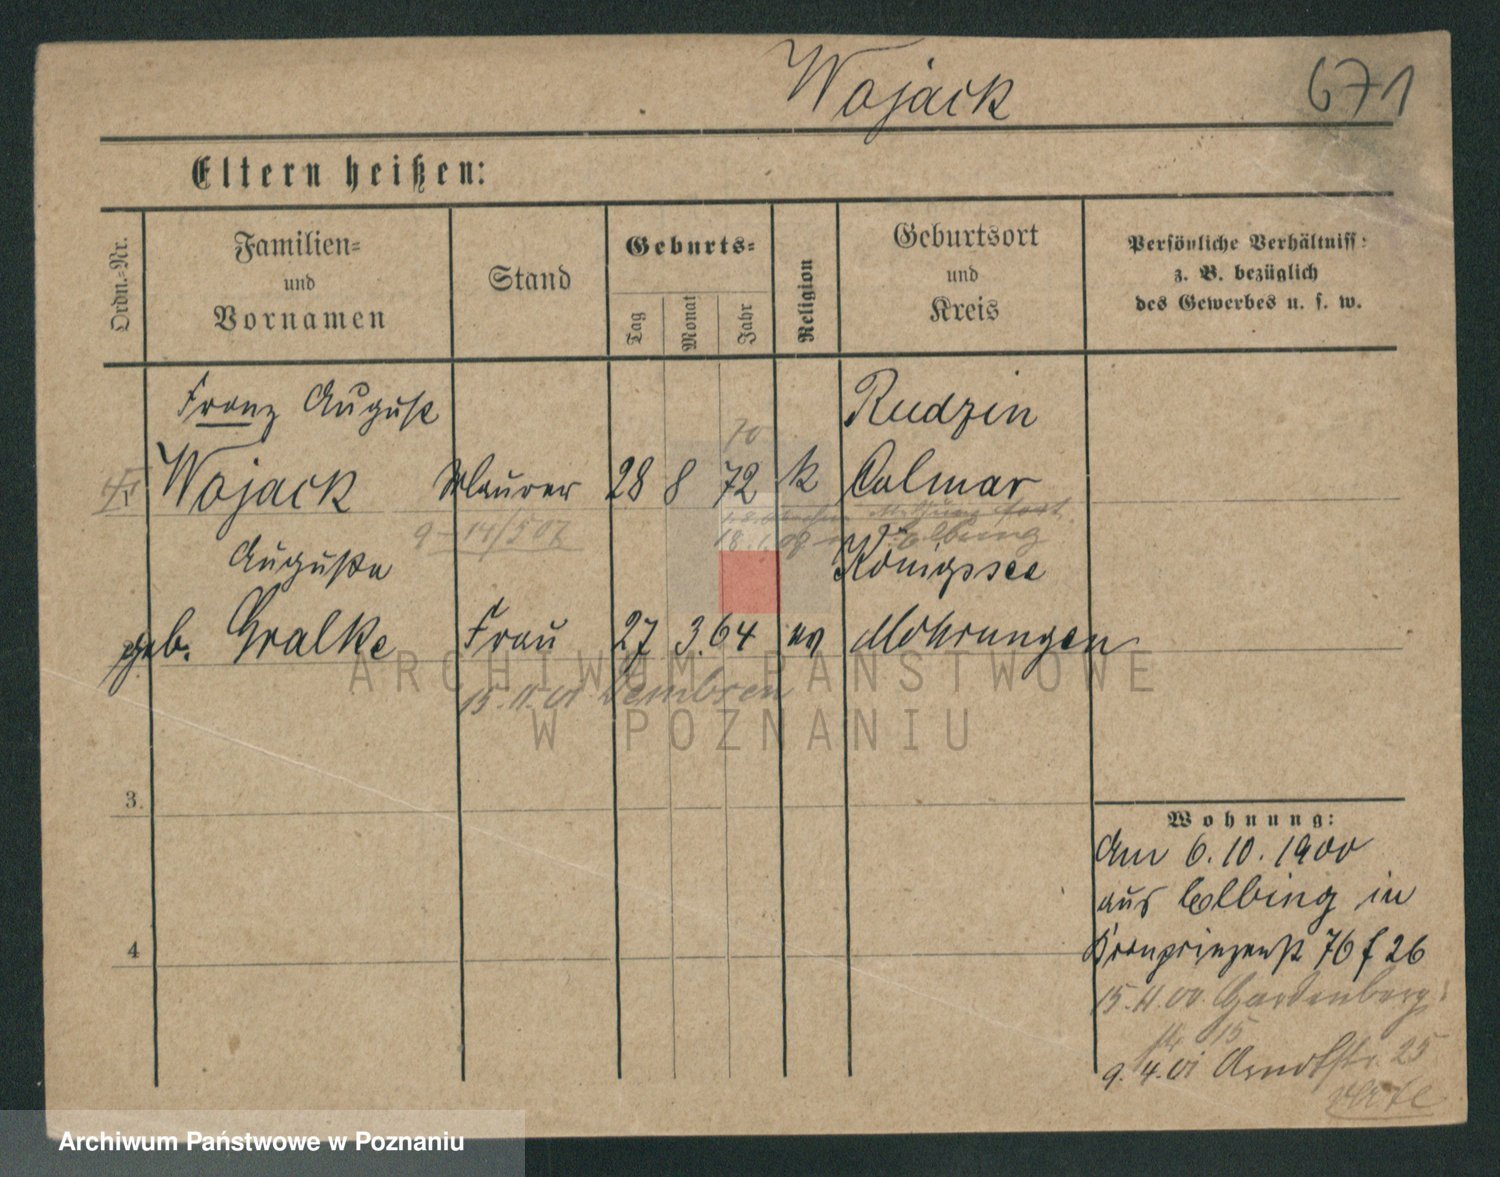 Wojack
671
Eltern heißen:
Ordn.-Nr.
Familien-
und
Vornamen
Stand
Geburts-
Tag
Monat
Jahr
Religion
Geburtsort
und
Kreis
Persönliche Verhältniss:
z. B. bezüglich
des Gewerbes u. s. w.
Franz August
Rudzin
70
Wojack Maurer 28 8 72 k Colmar
9 14/5 07
18. 1. 09 Elbing
Auguste
Königssee
geb. Gralke Frau 27 3. 64 ev Mohrungen
15. 11. 01 Dembsen
ARCHIWUM PAŃSTWOWE
W POZNANIU
3.
4
Wohnung:
Am 6. 10. 1900
aus Elbing in
Kronprinzenst 76 f 26
15. 11. 00. Gartenberg
15
9. 4. 01 Arndtstr. 25
verte
Archiwum Państwowe w Poznaniu